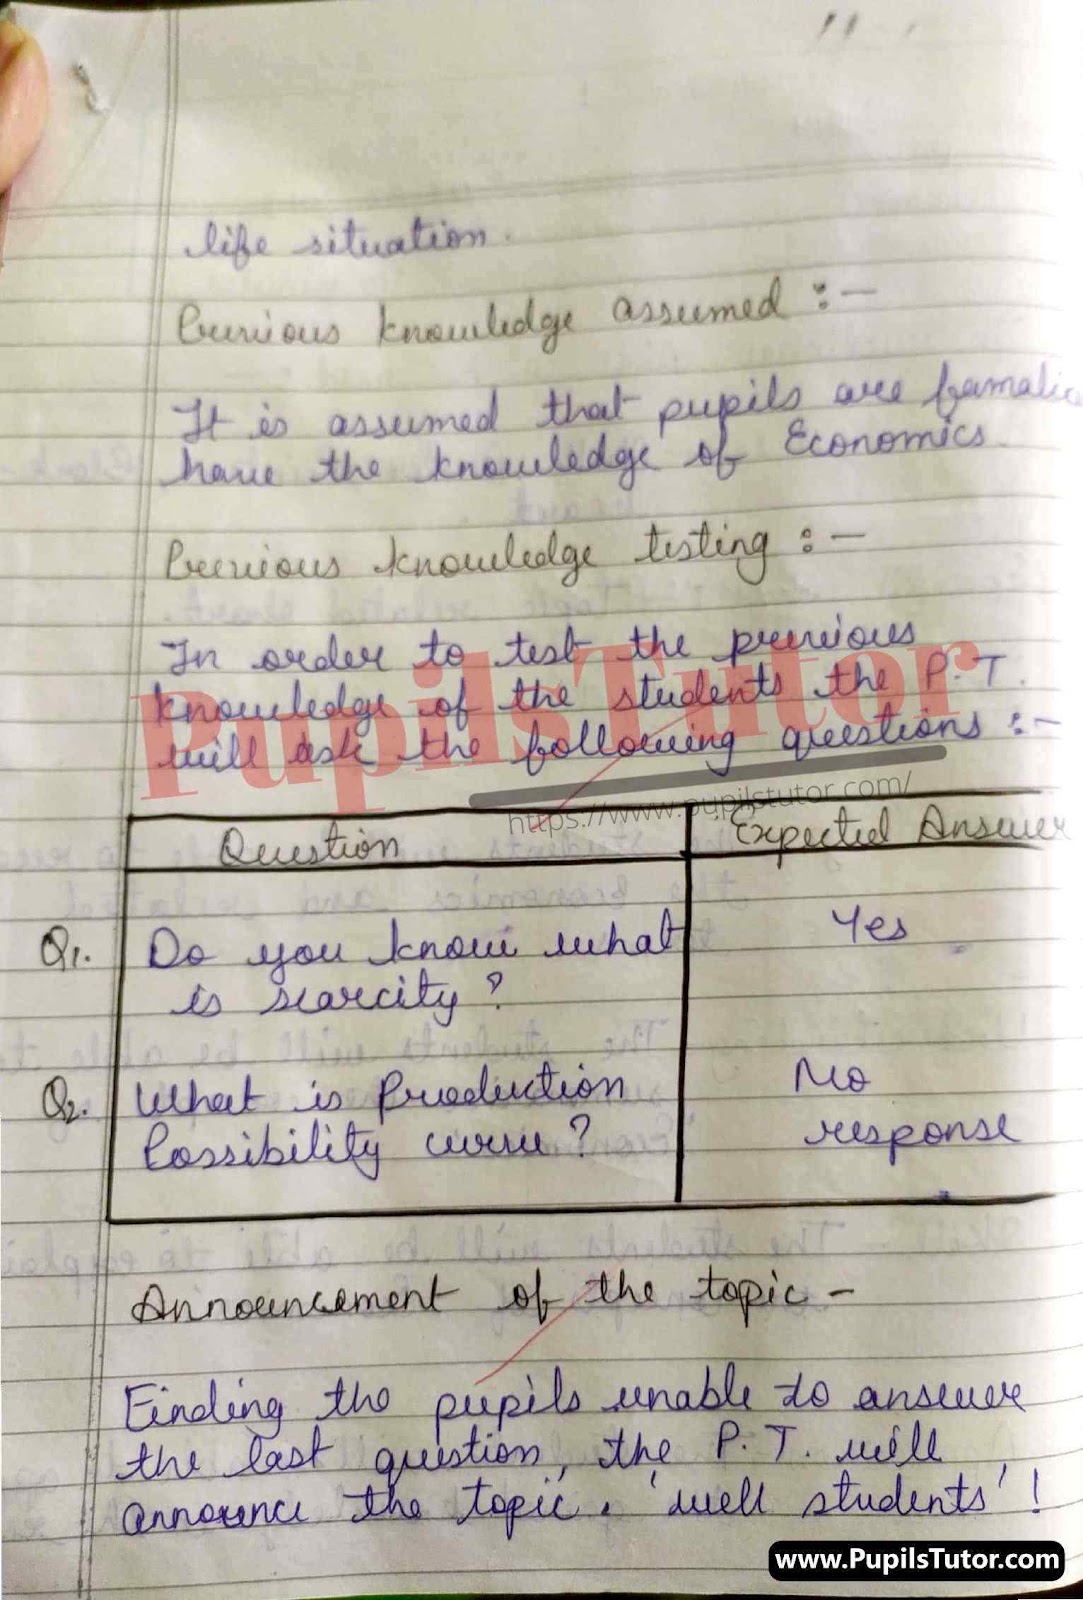 life situation.
Previous knowledge assumed :-
It is assumed that pupils are
have the knowledge of Economics.
Previous knowledge testing :-
In order to test the previous
knowledge of the students the P.T.
will ask the following questions :-
PupilsTutor
https://www.pupilstutor.com/
Question Expected Answer
Q1. Do you know what Yes
is scarcity?
Q2. What is Production No
Possibility curve? response
Announcement of the topic -
Finding the pupils unable to answer
the last question, the P.T. will
announce the topic. 'well students'!
www.PupilsTutor.com